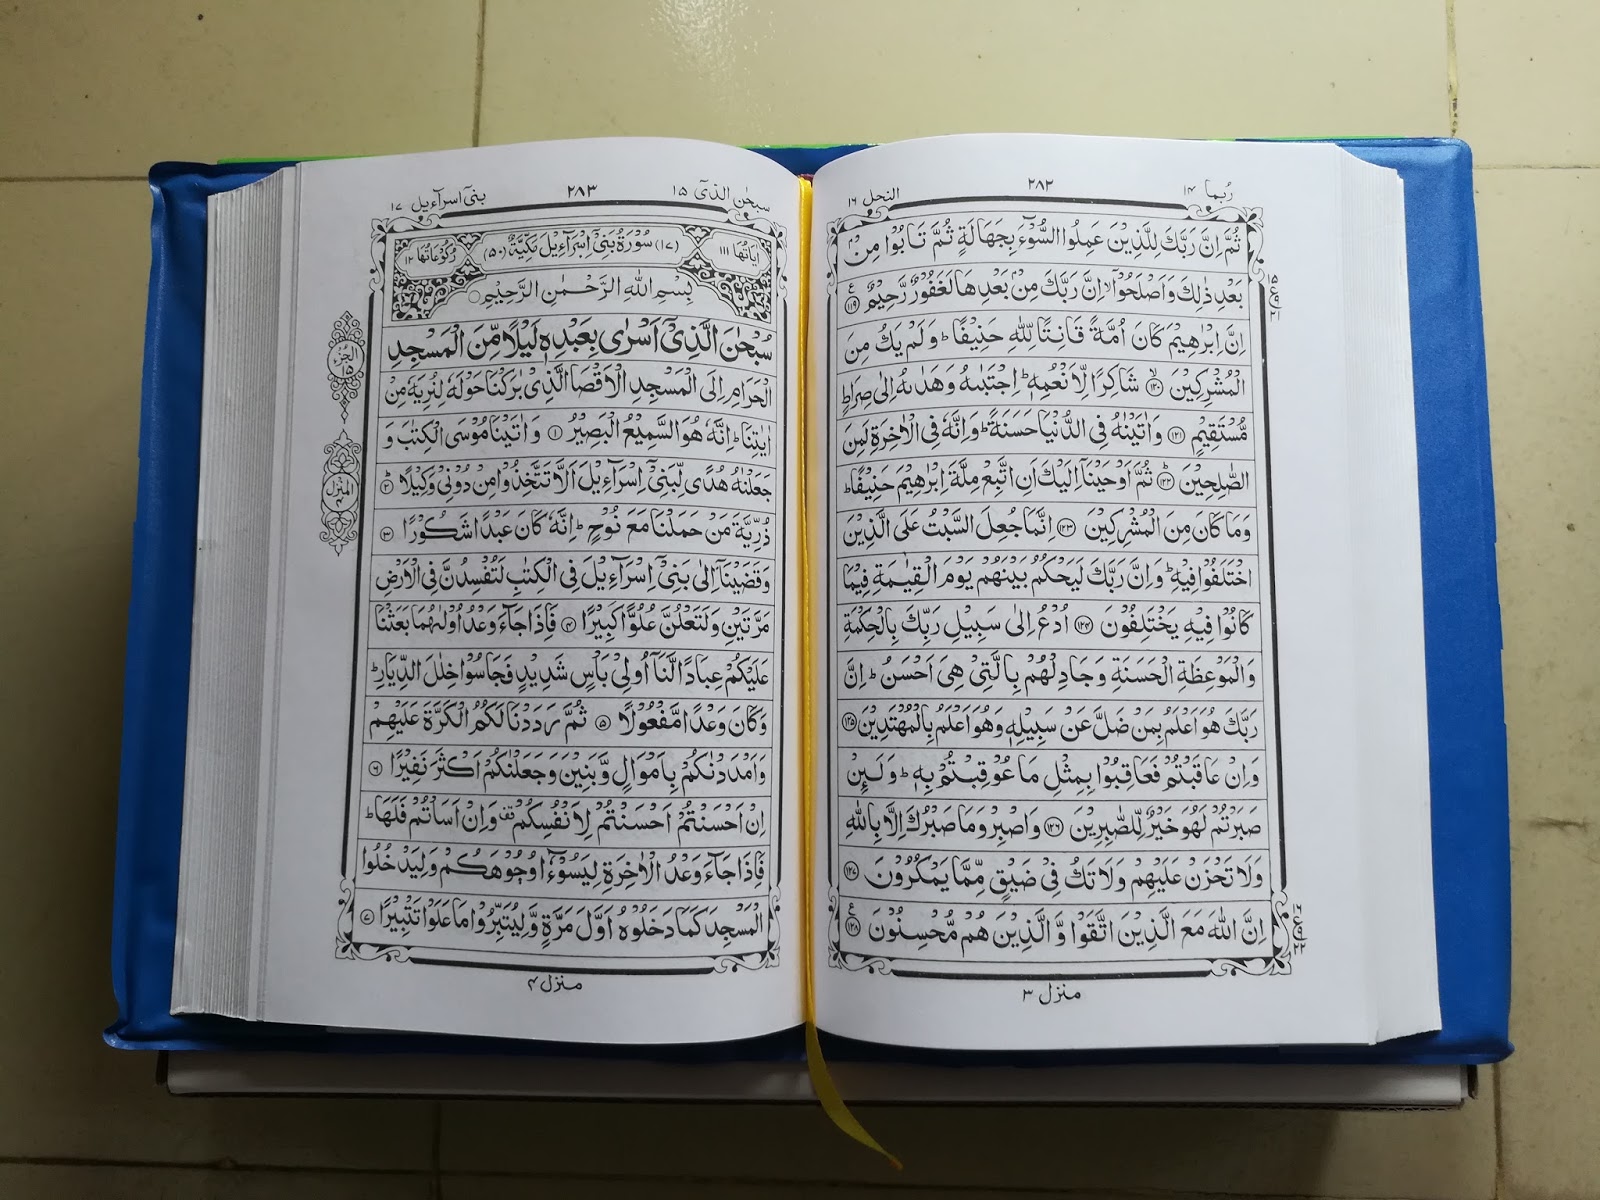 ربما ۱۴
۲۸۲
النحل ۱۶
ثُمَّ اِنَّ رَبَّكَ لِلَّذِيْنَ عَمِلُوا السُّوْٓءَ بِجَهَالَةٍ ثُمَّ تَابُوْا مِنْۢ
بَعْدِ ذٰلِكَ وَاَصْلَحُوْٓا ۙ اِنَّ رَبَّكَ مِنْۢ بَعْدِهَا لَغَفُوْرٌ رَّحِيْمٌ ۱۱۹
اِنَّ اِبْرٰهِيْمَ كَانَ اُمَّةً قَانِتًا لِّلّٰهِ حَنِيْفًا ؕ وَلَمْ يَكُ مِنَ
الْمُشْرِكِيْنَ ۱۲۰ شَاكِرًا لِّاَنْعُمِهٖ ؕ اِجْتَبٰىهُ وَهَدٰىهُ اِلٰى صِرَاطٍ
مُّسْتَقِيْمٍ ۱۲۱ وَاٰتَيْنٰهُ فِى الدُّنْيَا حَسَنَةً ؕ وَاِنَّهٗ فِى الْاٰخِرَةِ لَمِنَ
الصّٰلِحِيْنَ ۱۲۲ ثُمَّ اَوْحَيْنَآ اِلَيْكَ اَنِ اتَّبِعْ مِلَّةَ اِبْرٰهِيْمَ حَنِيْفًا ؕ
وَمَا كَانَ مِنَ الْمُشْرِكِيْنَ ۱۲۳ اِنَّمَا جُعِلَ السَّبْتُ عَلَى الَّذِيْنَ
اخْتَلَفُوْا فِيْهِ ؕ وَاِنَّ رَبَّكَ لَيَحْكُمُ بَيْنَهُمْ يَوْمَ الْقِيٰمَةِ فِيْمَا
كَانُوْا فِيْهِ يَخْتَلِفُوْنَ ۱۲۴ اُدْعُ اِلٰى سَبِيْلِ رَبِّكَ بِالْحِكْمَةِ
وَالْمَوْعِظَةِ الْحَسَنَةِ وَجَادِلْهُمْ بِالَّتِىْ هِىَ اَحْسَنُ ؕ اِنَّ
رَبَّكَ هُوَ اَعْلَمُ بِمَنْ ضَلَّ عَنْ سَبِيْلِهٖ وَهُوَ اَعْلَمُ بِالْمُهْتَدِيْنَ ۱۲۵
وَاِنْ عَاقَبْتُمْ فَعَاقِبُوْا بِمِثْلِ مَا عُوْقِبْتُمْ بِهٖ ؕ وَلَئِنْ
صَبَرْتُمْ لَهُوَ خَيْرٌ لِّلصّٰبِرِيْنَ ۱۲۶ وَاصْبِرْ وَمَا صَبْرُكَ اِلَّا بِاللّٰهِ
وَلَا تَحْزَنْ عَلَيْهِمْ وَلَا تَكُ فِىْ ضَيْقٍ مِّمَّا يَمْكُرُوْنَ ۱۲۷
اِنَّ اللّٰهَ مَعَ الَّذِيْنَ اتَّقَوْا وَّالَّذِيْنَ هُمْ مُّحْسِنُوْنَ ۱۲۸
منزل ۳
سبحٰن الذیٓ ۱۵
۲۸۳
بنیٓ اسرآءیل ۱۷
اٰيَاتُهَا ۱۱۱
(۱۷) سُوْرَةُ بَنِىْٓ اِسْرَآءِيْلَ مَكِّيَّةٌ (۵۰)
رُكُوْعَاتُهَا ۱۲
بِسْمِ اللّٰهِ الرَّحْمٰنِ الرَّحِيْمِ
سُبْحٰنَ الَّذِىْٓ اَسْرٰى بِعَبْدِهٖ لَيْلًا مِّنَ الْمَسْجِدِ
الْحَرَامِ اِلَى الْمَسْجِدِ الْاَقْصَا الَّذِىْ بٰرَكْنَا حَوْلَهٗ لِنُرِيَهٗ مِنْ
اٰيٰتِنَا ؕ اِنَّهٗ هُوَ السَّمِيْعُ الْبَصِيْرُ ۱ وَاٰتَيْنَا مُوْسَى الْكِتٰبَ وَ
جَعَلْنٰهُ هُدًى لِّبَنِىْٓ اِسْرَآءِيْلَ اَلَّا تَتَّخِذُوْا مِنْ دُوْنِىْ وَكِيْلًا ۲
ذُرِّيَّةَ مَنْ حَمَلْنَا مَعَ نُوْحٍ ؕ اِنَّهٗ كَانَ عَبْدًا شَكُوْرًا ۳
وَقَضَيْنَآ اِلٰى بَنِىْٓ اِسْرَآءِيْلَ فِى الْكِتٰبِ لَتُفْسِدُنَّ فِى الْاَرْضِ
مَرَّتَيْنِ وَلَتَعْلُنَّ عُلُوًّا كَبِيْرًا ۴ فَاِذَا جَآءَ وَعْدُ اُوْلٰىهُمَا بَعَثْنَا
عَلَيْكُمْ عِبَادًا لَّنَآ اُولِىْ بَاْسٍ شَدِيْدٍ فَجَاسُوْا خِلٰلَ الدِّيَارِ ؕ
وَكَانَ وَعْدًا مَّفْعُوْلًا ۵ ثُمَّ رَدَدْنَا لَكُمُ الْكَرَّةَ عَلَيْهِمْ
وَاَمْدَدْنٰكُمْ بِاَمْوَالٍ وَّبَنِيْنَ وَجَعَلْنٰكُمْ اَكْثَرَ نَفِيْرًا ۶
اِنْ اَحْسَنْتُمْ اَحْسَنْتُمْ لِاَنْفُسِكُمْ قف وَاِنْ اَسَاْتُمْ فَلَهَا ؕ
فَاِذَا جَآءَ وَعْدُ الْاٰخِرَةِ لِيَسُوْٓءٗا وُجُوْهَكُمْ وَلِيَدْخُلُوا
الْمَسْجِدَ كَمَا دَخَلُوْهُ اَوَّلَ مَرَّةٍ وَّلِيُتَبِّرُوْا مَا عَلَوْا تَتْبِيْرًا ۷
الجزء ۱۵
المنزل ۴
منزل ۴